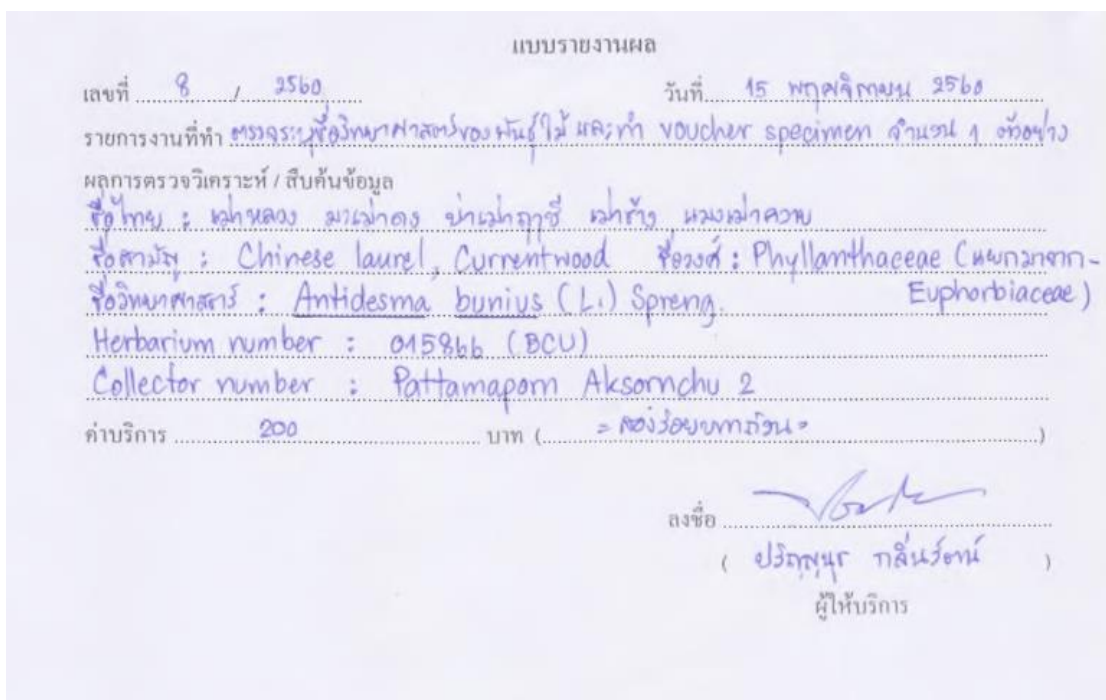 แบบรายงานผล
เลขที่ 8 / 2560 วันที่ 15 พฤศจิกายน 2560
รายการงานที่ทำ ตรวจระบุชื่อวิทยาศาสตร์ของพันธุ์ไม้ และทำ voucher specimen จำนวน 1 ตัวอย่าง
ผลการตรวจวิเคราะห์ / สืบค้นข้อมูล
ชื่อไทย : เม่าหลวง มะเม่าดง บ่าเม่าฤาษี เม่าช้าง แมงเม่าควาย
ชื่อสามัญ : Chinese laurel, Currentwood ชื่อวงศ์ : Phyllanthaceae (แยกมาจาก-
ชื่อวิทยาศาสตร์ : Antidesma bunius (L.) Spreng. Euphorbiaceae)
Herbarium number : 015866 (BCU)
Collector number : Pattamaporn Aksornchu 2
ค่าบริการ 200 บาท ( = สองร้อยบาทถ้วน = )
ลงชื่อ
( ปริญญนุช กลิ่นรัตน์ )
ผู้ให้บริการ